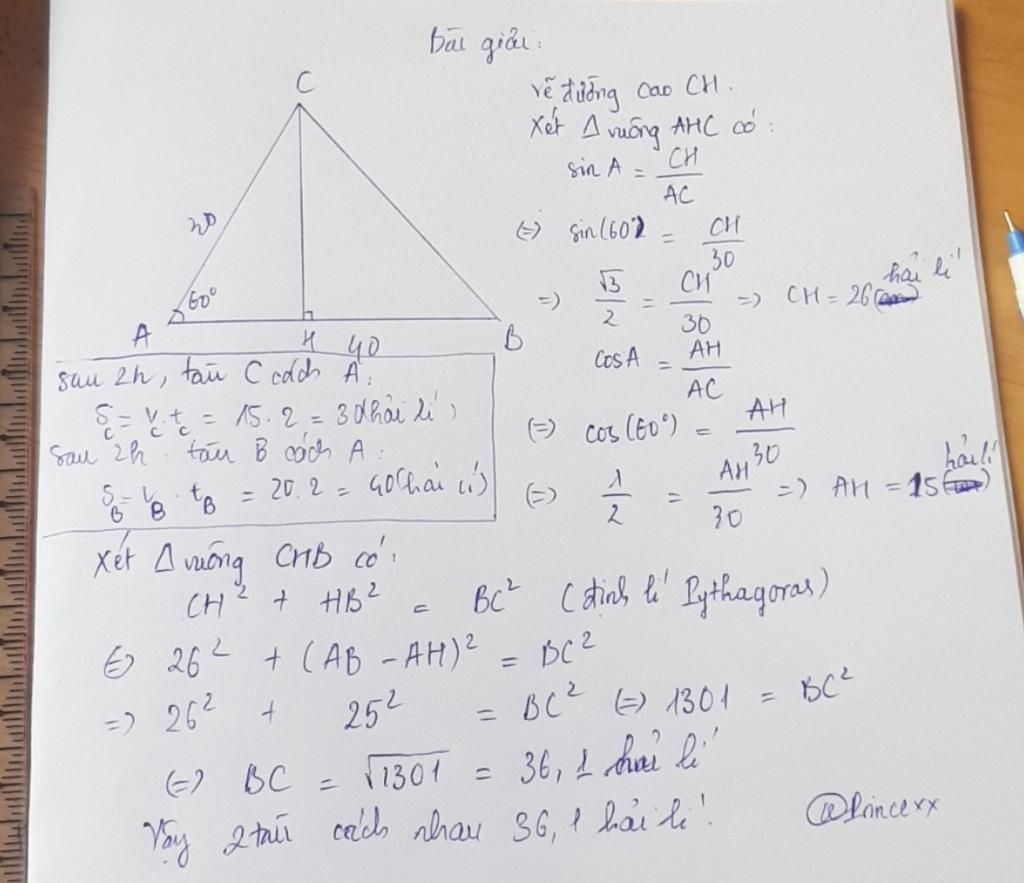 Bài giải:
C
30
60°
A
H
40
B
vẽ đường cao CH.
Xét Δ vuông AHC có:
sin A = CH/AC
⇔ sin(60°) = CH/30
=> √3/2 = CH/30 => CH = 26 hải lí
cosA = AH/AC
⇔ cos(60°) = AH/30
⇔ 1/2 = AH/30 => AH = 15 hải lí
sau 2h, tàu C cách A:
S_C = V_C . t_C = 15.2 = 30(hải lí)
sau 2h: tàu B cách A:
S_B = V_B . t_B = 20.2 = 40(hải lí)
Xét Δ vuông CHB có:
CH² + HB² = BC² (định lí Pythagoras)
⇔ 26² + (AB - AH)² = BC²
=> 26² + 25² = BC² ⇔ 1301 = BC²
⇔ BC = √1301 = 36,1 hải lí
Vậy 2 tàu cách nhau 36,1 hải lí.
@Princexx